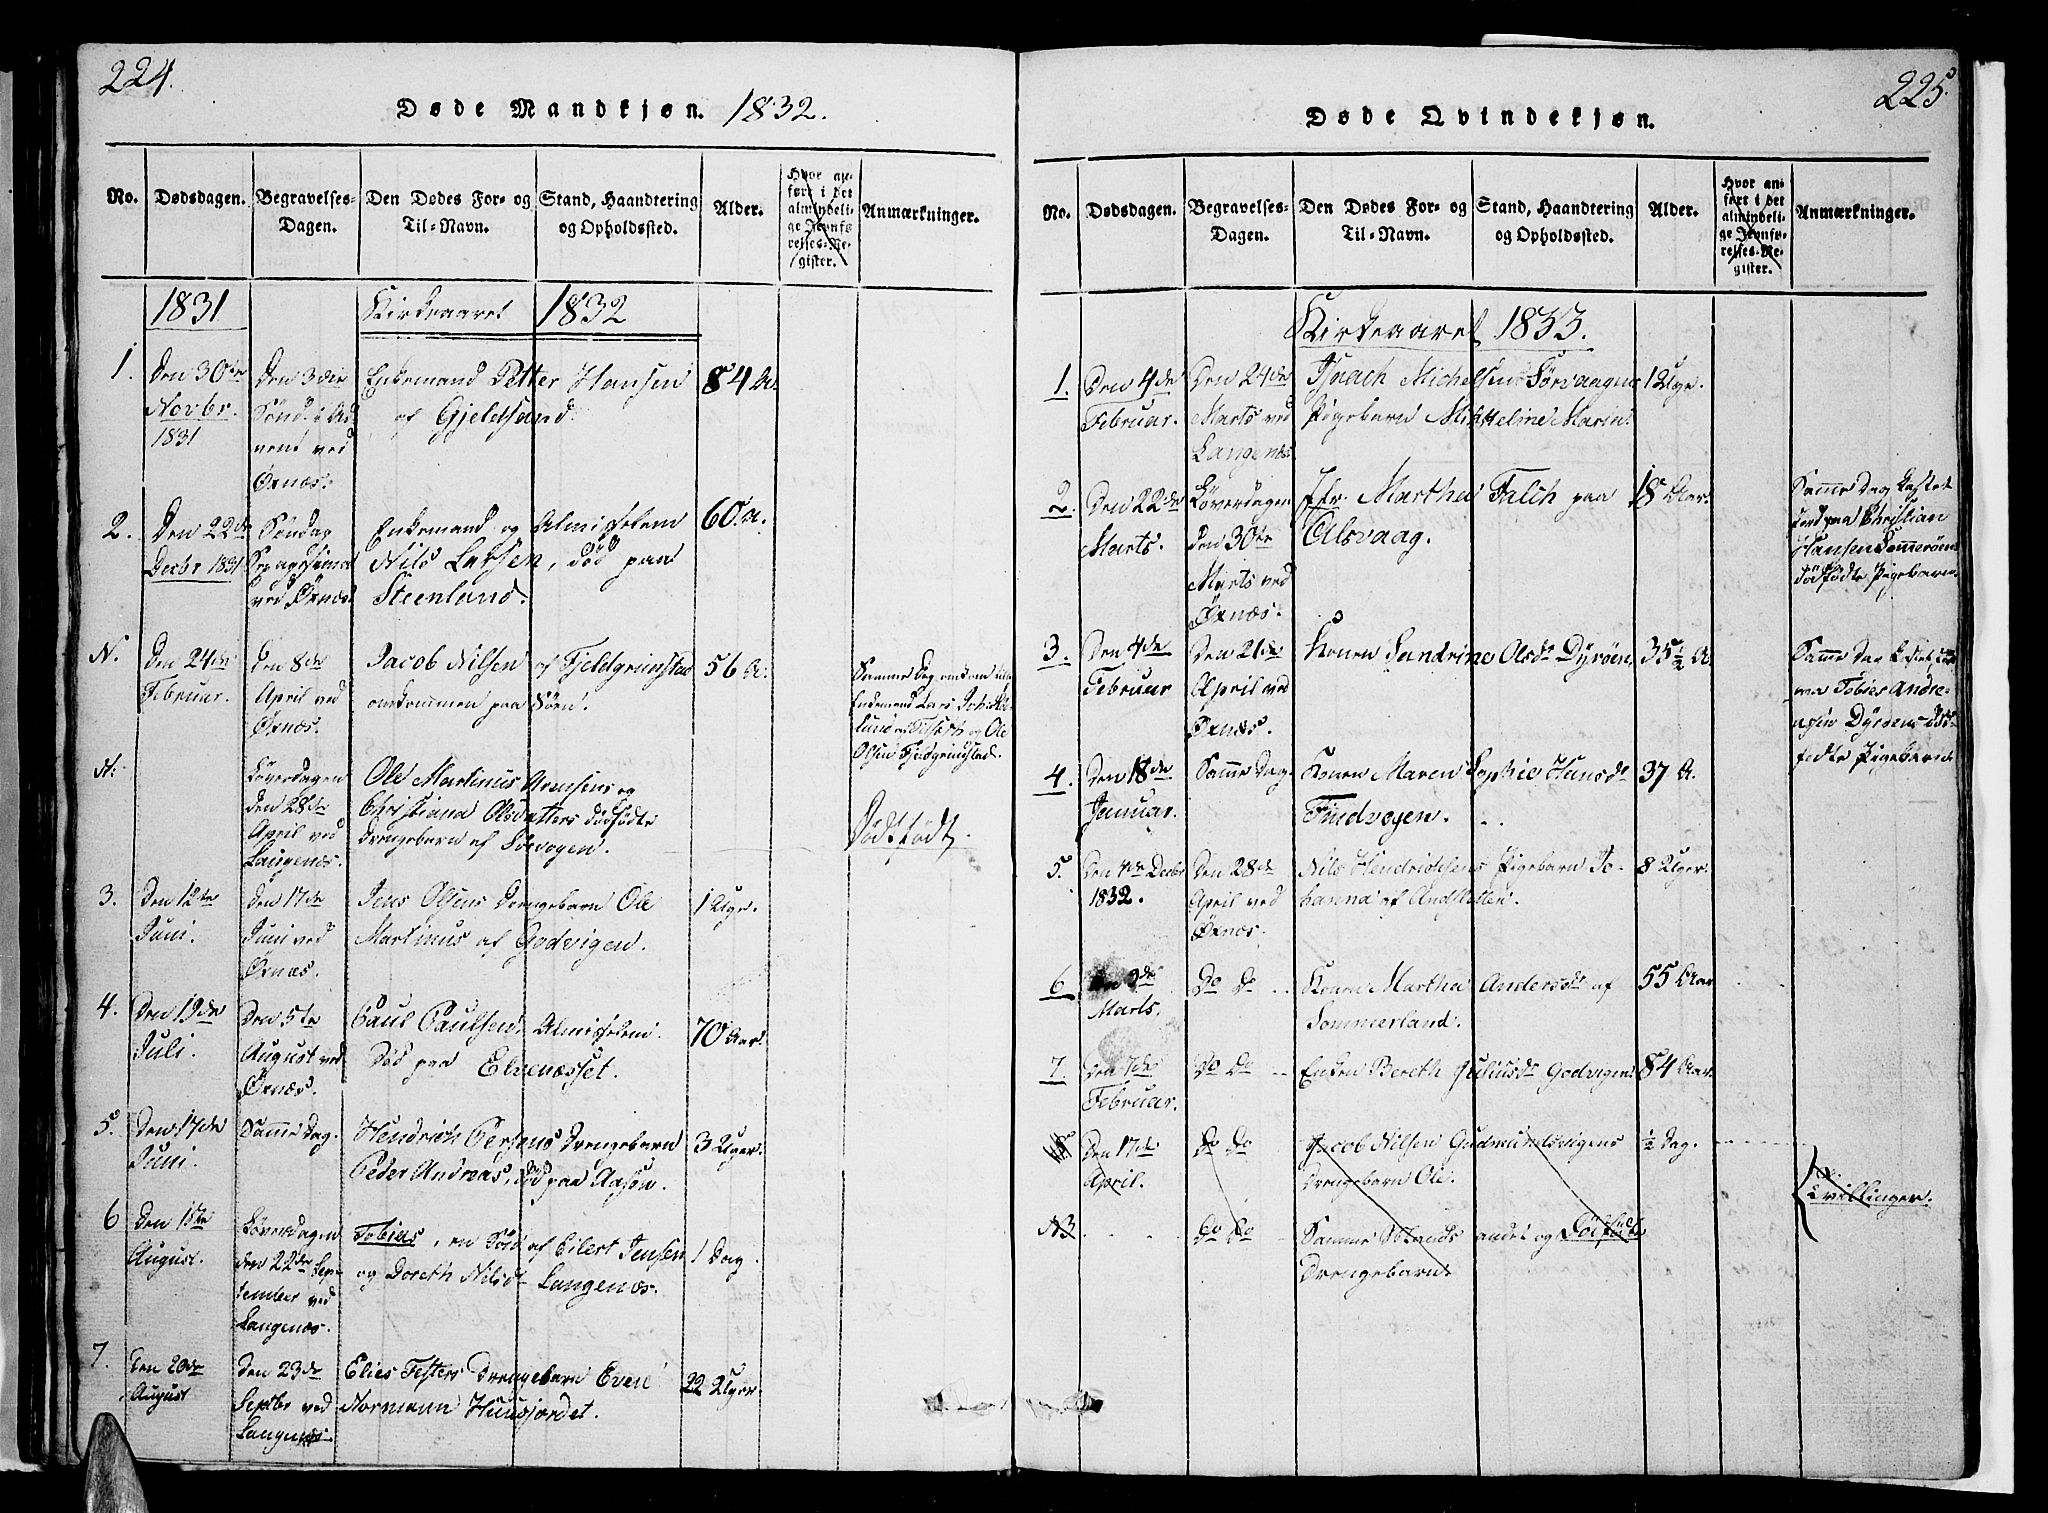 224.
Døde Mandkjøn. 1832.
No.
Dødsdagen.
Begravelses-
Dagen.
Den Dødes For- og
Til-Navn.
Stand, Haandtering
og Opholdssted.
Alder.
Hvor an-
ført i det
almindeli-
ge Jevnfø-
relses-Re-
gister.
Anmærkninger.
1831
Kirkeaaret 1832
1.
Den 30te
Novbr.
1831
Den 3die
Sönd. i Ad-
vent ved
Øxnæs.
Enkemand Petter Hansen
af Gjeldsand.
84 A.
2.
Den 22de
Decbr 1831
Söndag
ved Øxnæs
Enkemand og Almisselem
Nils Larsen, död paa
Steenland.
60. A.
N.
Den 24de
Februar.
Den 8de
April ved
Øxnæs.
Jacob Nilsen af Fjeldgrimstad
omkommen paa Söen.
56 A.
Samme Dag omkom
Enkemand Lars
og Ole
Olsen Fjeldgrimstad.
N.
Löverdagen
den 28de
April ved
Langenæs.
Ole Martinus Arensens og
Christiana Olsdatters dödfödte
Drengebarn af
Dödfödt.
3.
Den 12te
Juni.
Den 17de
Juni ved
Øxnæs.
Jens Olsens Drengebarn Ole
Martinus af Godvigen.
1 Uge.
4.
Den 19de
Juli.
Den 5te
August ved
Øxnæs.
Paul Paulsen, Almisselem.
Död paa Elvenæsset.
70 Aar.
5.
Den 17de
Juni.
Samme Dag.
Hendrich Persens Drengebarn
Peder Andreas, död paa Aasön.
3 Uger.
6
Den 1ste
August.
Löverdagen
den 22de Sep-
tember ved
Langenæs.
Tobias, en Sön af Eilert Jensen
og Doreth Nilsdr Langenæs.
1 Dag.
7.
Den 20de
August
Den 23de
Septbr ved
Langenæs
Elies Festers Drengebarn Even
Normann Huusjordet.
22 Uger.
225.
Døde Qvindekjøn.
No.
Dødsdagen.
Begravelses-
Dagen.
Den Dødes For- og
Til-Navn.
Stand, Haandtering
og Opholdssted.
Alder.
Hvor an-
ført i det
almindeli-
ge Jevnfø-
relses-Re-
gister.
Anmærkninger.
Kirkeaaret 1833.
1.
Den 4de
Februar.
Den 24de
Marts ved
Langenæs
Isach Michelsens Sörvaagens
Pigebarn Mikkeline Maria.
1 Uge.
2.
Den 22de
Marts.
Löverdagen
den 30te
Marts ved
Øxnæs.
Jfr. Martha Falch paa
Alsvaag.
18 Aar.
Samme Dag kastet
Jord paa Christian
Hansen
dödfödte Pigebarn.
3.
Den 4de
Februar
Den 21de
April ved
Øxnæs.
Konen Sandrine Olsdr Dyröen
35 1/2 A
Samme Dag kastet
Tobias Andre-
asen Dyröens död-
födte Pigebarn.
4.
Den 18de
Januar.
Samme Dag.
Konen Maren Sophie Hansdr
Findvogen.
37 A.
5.
Den 4de Decbr
1832.
Den 28de
April ved
Øxnæs.
Nils Hendrichsens Pigebarn Jo-
hanna af Andkletten.
8 Uger.
6.
Den 9de
Marts.
Do Do
Konen Martha Andersdr af
Sommerland.
55 Aar
7.
Den 7de
Februar.
Do Do
Enken Bereth Juliusdr Godvigen
84 Aar.
Den 17de
April.
Do Do
Jacob Nilsen Gudmundsvigens
Drengebarn Ole.
1/2 Dag.
Tvillinger.
N3
Do Do
Samme Mands andet og Dödfödte
Drengebarn.